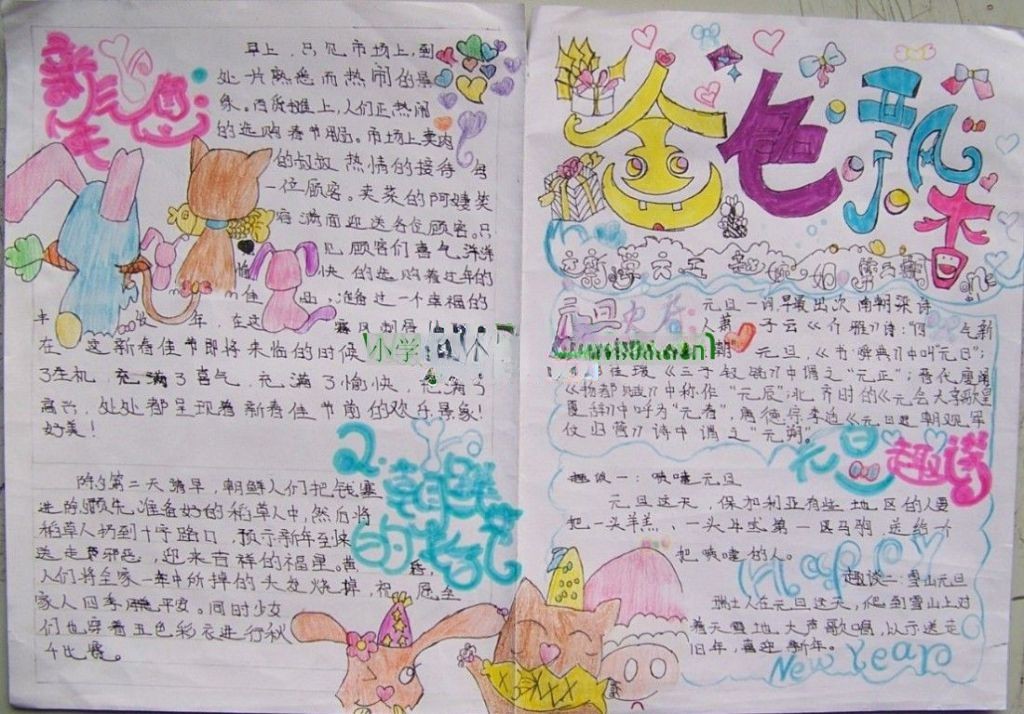 早上，只见市场上，到
处一片熟悉而热闹的景
象。
上，人们正热闹
的选购春节用品。市场上卖肉
的叔叔热情的接待每
一位顾客。卖菜的阿姨笑
容满面迎送各位顾客。只
见顾客们喜气洋洋
愉快的选购着过年的
佳品，准备过一个幸福的
年，在这
在这新春佳节即将来临的时候
了生机，充满了喜气，充满了愉快，充满了
高兴，处处都呈现着新春佳节前的欢乐景象！
好美！
小学
2.朝鲜
的
除夕第二天清早，朝鲜人们把钱塞
进预先准备好的稻草人中，然后将
稻草人扔到十字路口，预示新年到来
送走邪恶，迎来吉祥的福星。黄昏，
人们将全家一年中所掉的头发烧掉，祝愿全
家人四季平安。同时少女
们也穿着五色彩衣进行秋
千比赛。
金色飘香
元旦一词，早最出次南朝梁诗
人萧子云《介雅》诗：气新
元旦，《书舜典》中叫"元日"；
《三子钗铭》中谓之"元正"；晋代庾阐
《扬都赋》中称作"元辰"；北齐时的《元会大享歌皇
夏辞》中呼为"元春"，唐德宗李适《元日退朝观军
仗归营》诗中谓之"元朔"。
元旦趣谈
趣谈一：咳嗽元旦
元旦这天，保加利亚有些地区的人要
把一头羊羔、一头牛或第一匹马驹，送给个
把咳嗽的人。
Happy
趣谈二：雪山元旦
瑞士人在元旦这天，爬到雪山上对
着天雪地大声歌唱，以示送走
旧年，喜迎新年。
New Year